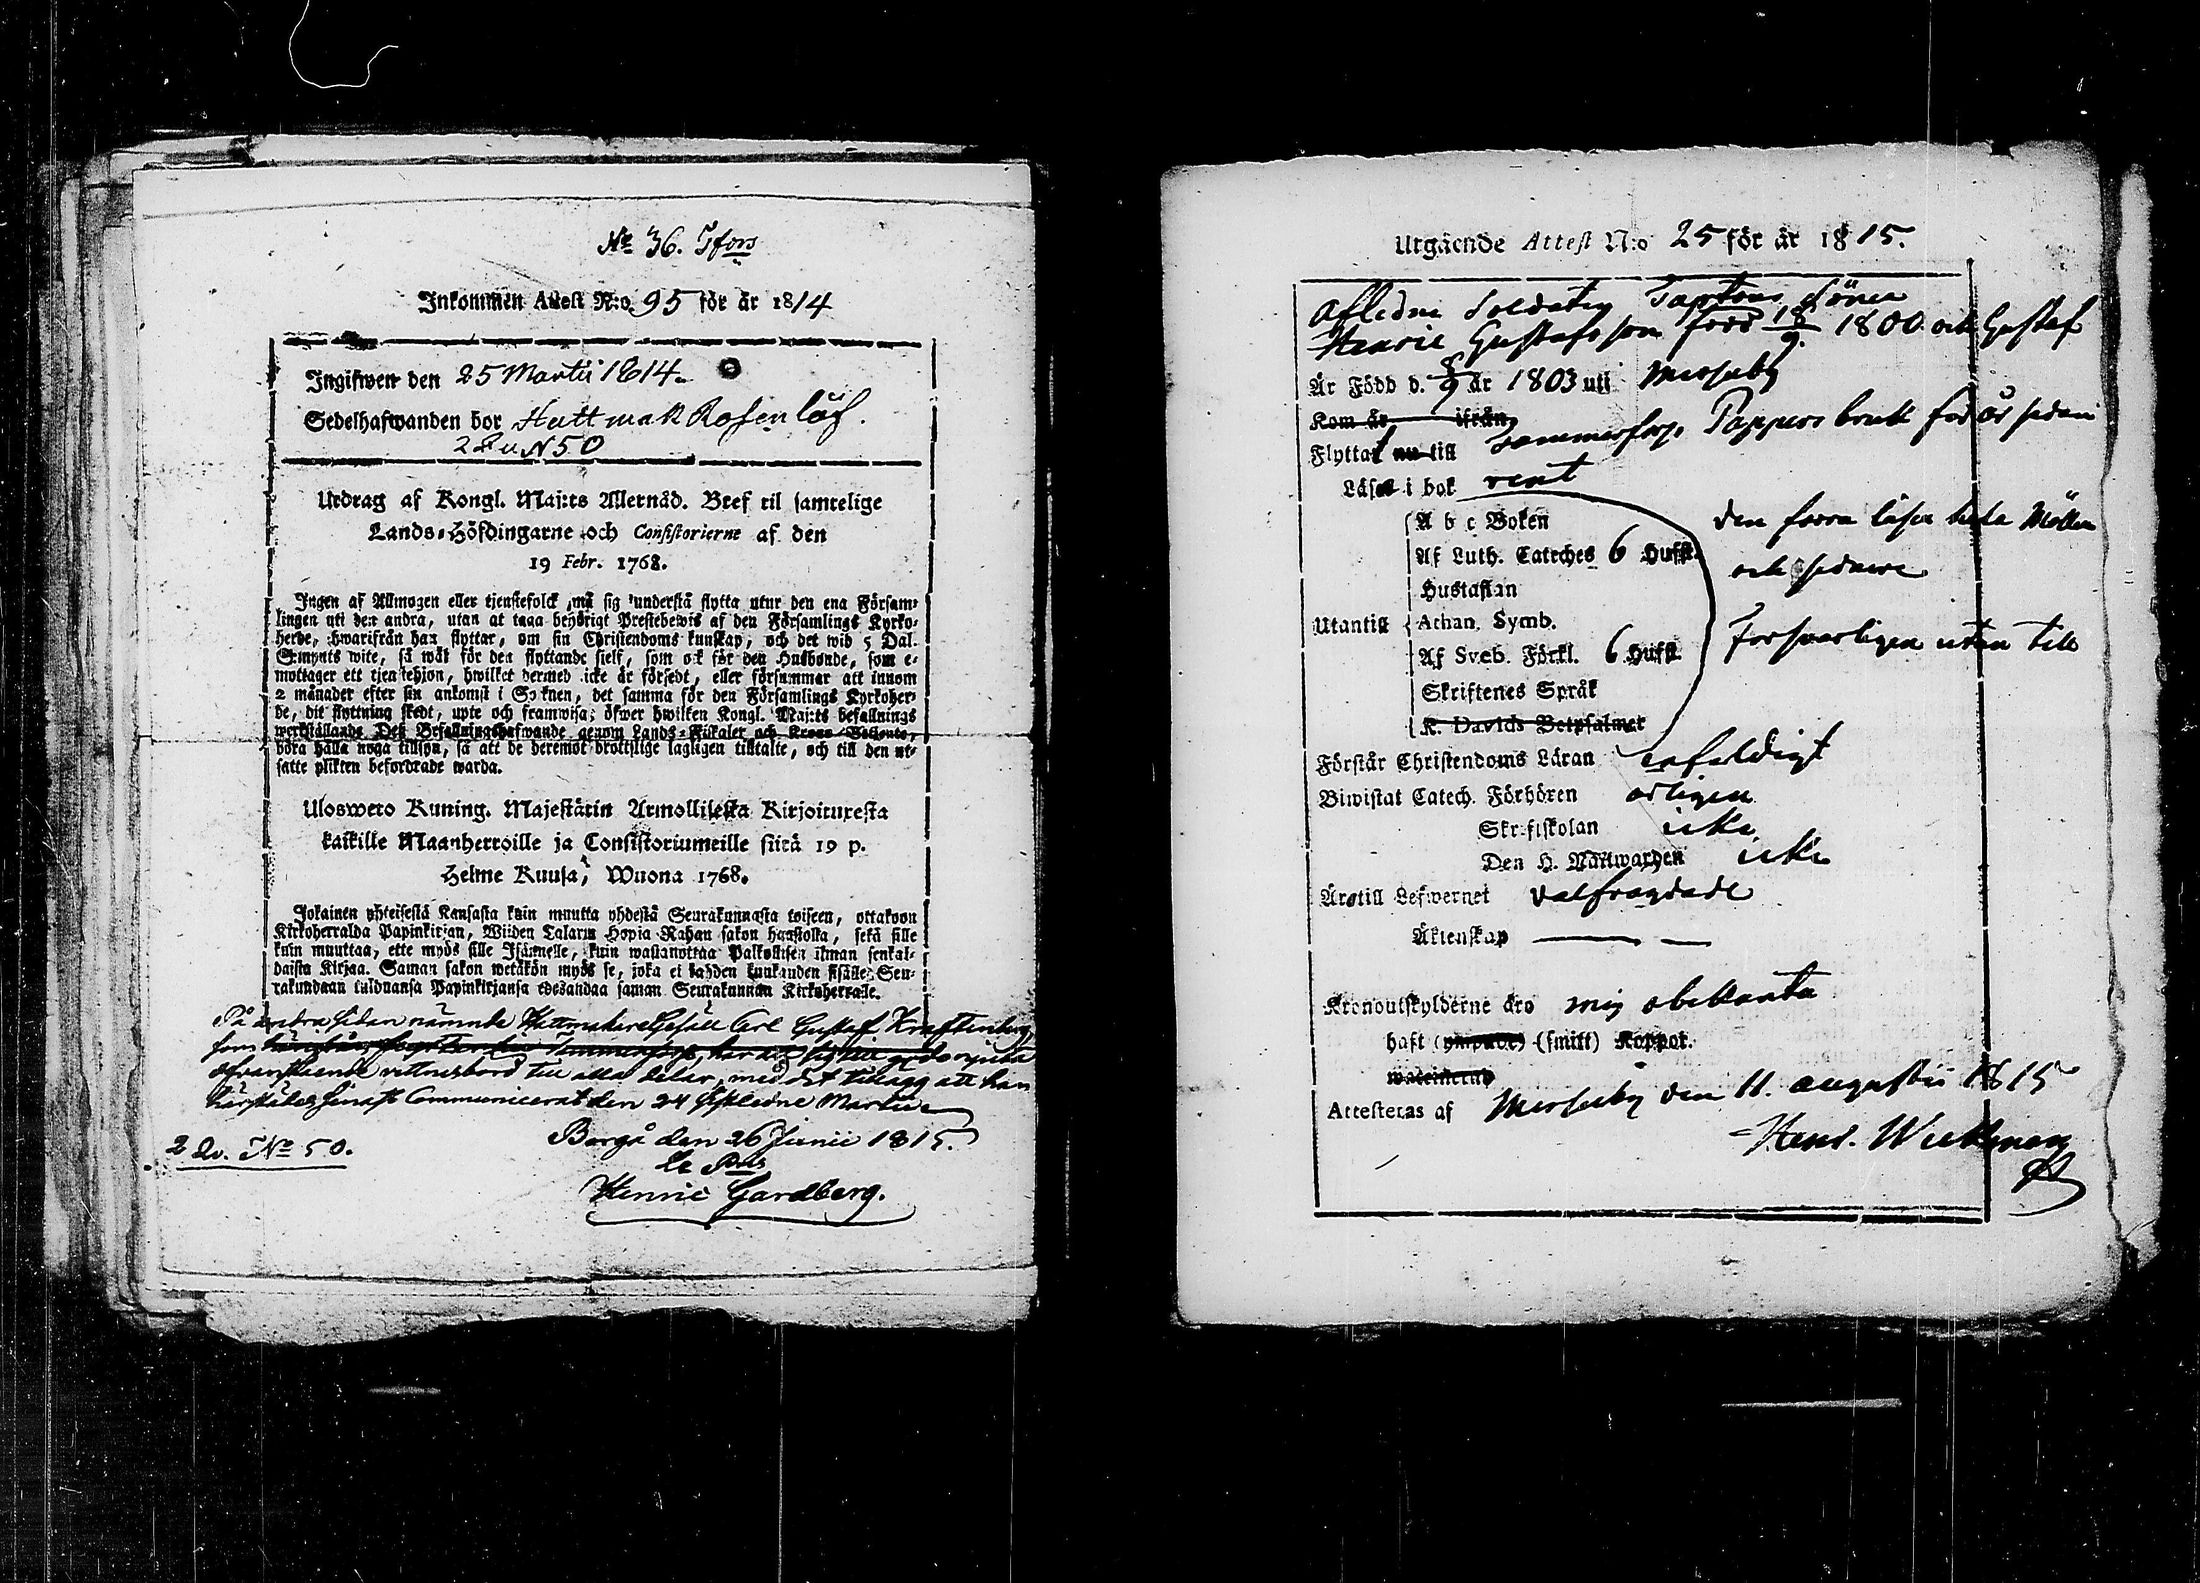 No 36. Tfors
Inkommen Attest N:o 95 för år 1814
Ingifwen den 25 Martii 1814.
Sedelhafwanden bor Hattmak Rosenlöf.
2 Qu N 50
Utdrag af Kongl. Maj:ts Allernåd. Bref til samtelige
Lands-Höfdingarne och Consistorierne af den
19 Febr. 1768.
Ingen af Allmogen eller tjenstefolck må sig understå flytta utur den ena Försam-
lingen uti den andra, utan at taga behörigt Prestebewis af den Församlings Kyrko-
herde, hwarifrån han flyttar, om sin Christendoms kunskap, och det wid 5 Dal.
S:mynts wite, så wäl för den flyttande sielf, som ock för den Husbonde, som e-
mottager ett tjenstehjon, hwilket dermed icke är försedt, eller försummar att innom
2 månader efter sin ankomst i Socknen, det samma för den Församlings Kyrkoher-
de, dit flyttning skedt, upte och framwisa; öfwer hwilken Kongl. Maj:ts befallnings
werkställande Deß Befallningshafwande genom Lands-Fiskaler och Krono-Betiente,
böra hålla noga tillsyn, så att de deremot brottslige lagligen tilltalte, och till den ut-
satte plikten befordrade warda.
Ulosweto Kuning. Majestätin Armollisesta Kirjoituxesta
kaikille Maanherroille ja Consistoriumeille siitä 19 p.
Helme Kuusa, Wuona 1768.
Jokainen yhteisestä Kansasta kuin muutta yhdestä Seurakunnasta toiseen, ottakoon
Kirkoherralda Papinkirjan, Wiiden Talarin Hopia Rahan sakon haastolla, sekä sille
kuin muuttaa, ette myös sille Isännelle, kuin wastanottaa Palkollisen ilman senkal-
daista Kirjaa. Saman sakon wetäkön myös se, joka ei kahden kuukauden sisälle Seu-
rakundaan tulduansa Papinkirjansa edesandaa saman Seurakunnan Kirkoherralle.
På andra sidan nämnde Hattmakare Gesäll Carl Gustaf Kraftenberg,
som har sig till godo njuta
ofvanstående vittnesbörd till alla delar, med det tillägg att han
härstädes senast Communicerat den 24 sistledne Martii
Borgå den 26 Junii 1815.
2 Qv. No 50.
Henric Gardberg.
Utgående Attest N:o 25 för år 1815.
Afledne Soldaten Taptons Söner
Henric Gustafsson född 18/9 1800 och Gustaf
Är Född d. 8/9 år 1803 uti Merseby
Kom år ifrån
Flyttat nu till Tammerfors Pappers bruk för år sedan
Läser i bok rent
A b c Boken
den förra läser hela
Af Luth. Cateches 6 Hufst.
och sednare
Hustaflan
Utantill
Athan. Symb.
Af Sveb. Förkl. 6 Hufst.
försvarligen utan till
Skriftenes Språk
K. Davids Botpsalmer
Förstår Christendoms Läran enfaldigt
Biwistat Catech. Förhören årligen
Skriftskolan icke
Den H. Nattwarden icke
Äro till Lefwernet välfrägdade
Äktenskap
Kronoutskylderne äro mig obekanta
haft (ympade) (smitt) Koppor.
Attesteras af Merseby den 11. augustii 1815
Henr. Wickman